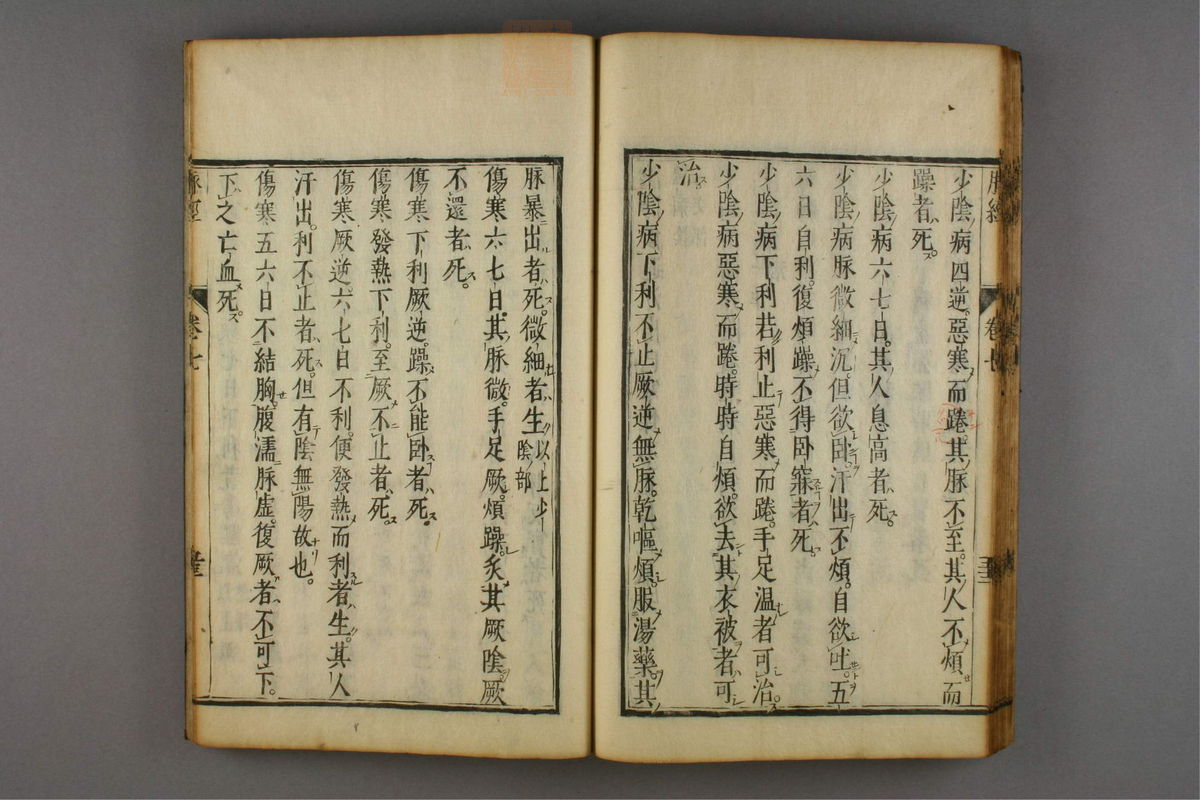 脉經 卷七
少陰病四逆。惡寒而踡。其脉不至。其人不煩而
躁者死。
少陰病六七日。其人息高者死。
少陰病脉微細沉。但欲卧。汗出不煩。自欲吐。五
六日自利。復煩躁不得卧寐者死。
少陰病下利若利止惡寒而踡。手足温者可治。
少陰病惡寒而踡。時時自煩。欲去其衣被者可
治
少陰病下利不止厥逆無脉。乾嘔煩。服湯藥。其
脉暴出者死。微細者生以上少
陰部
傷寒六七日。其脉微。手足厥。煩躁。灸其厥陰。厥
不還者死。
傷寒下利厥逆。躁不能卧者死。
傷寒發熱下利。至厥不止者死。
傷寒厥逆。六七日不利。便發熱而利者生。其人
汗出。利不止者死。但有陰無陽故也。
傷寒五六日不結胸。腹濡脉虚。復厥者不可下。
下之亡血死。
脉經 卷七